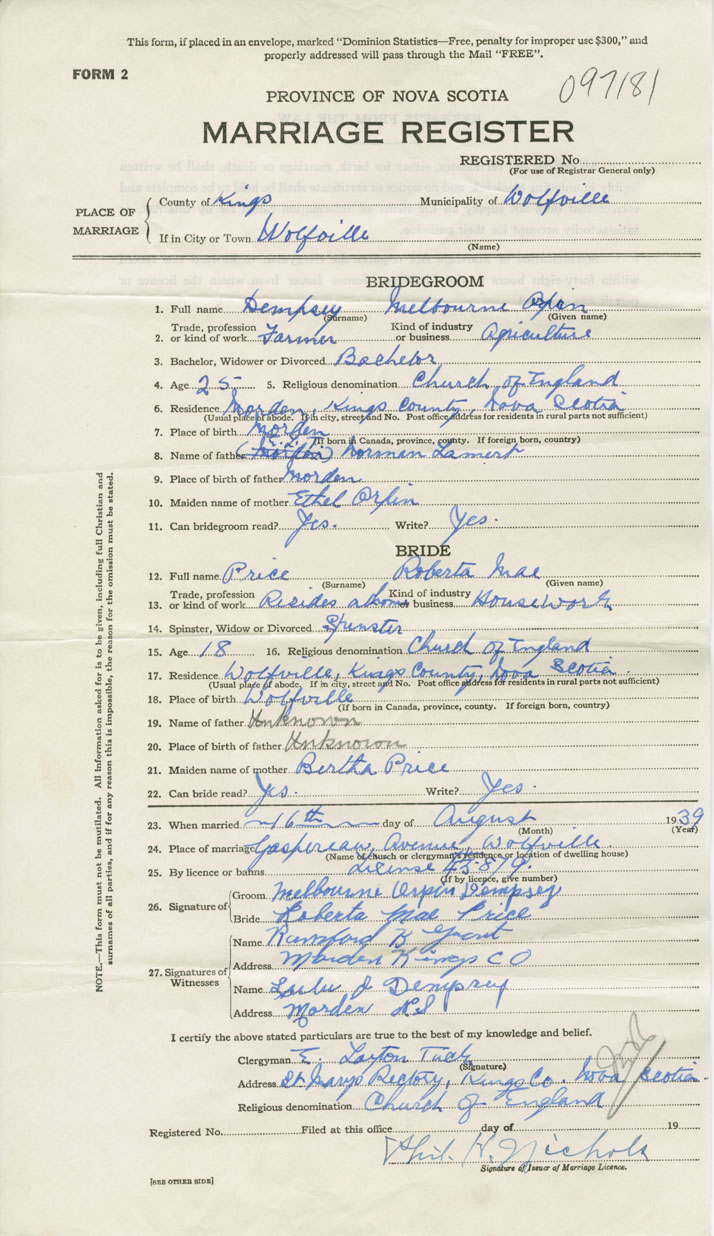 This form, if placed in an envelope, marked "Dominion Statistics—Free, penalty for improper use $300," and
properly addressed will pass through the Mail "FREE".
FORM 2
097181
PROVINCE OF NOVA SCOTIA
MARRIAGE REGISTER
REGISTERED No.
(For use of Registrar General only)
PLACE OF MARRIAGE
County of Kings Municipality of Wolfville
If in City or Town Wolfville
(Name)
BRIDEGROOM
1. Full name Dempsey Melbourne Orpin
(Surname) (Given name)
2. Trade, profession or kind of work Farmer Kind of industry or business Agriculture
3. Bachelor, Widower or Divorced Bachelor
4. Age 25 5. Religious denomination Church of England
6. Residence Morden, Kings County, Nova Scotia
(Usual place of abode. If in city, street and No. Post office address for residents in rural parts not sufficient)
7. Place of birth Morden
(If born in Canada, province, county. If foreign born, country)
8. Name of father (Morden) Norman Lamert
9. Place of birth of father Morden.
10. Maiden name of mother Ethel Orpin
11. Can bridegroom read? Yes. Write? Yes.
BRIDE
12. Full name Price Roberta Mae
(Surname) (Given name)
13. Trade, profession or kind of work Resides at home Kind of industry or business Housework
14. Spinster, Widow or Divorced Spinster
15. Age 18 16. Religious denomination Church of England
17. Residence Wolfville, Kings County, Nova Scotia.
(Usual place of abode. If in city, street and No. Post office address for residents in rural parts not sufficient)
18. Place of birth Wolfville
(If born in Canada, province, county. If foreign born, country)
19. Name of father Unknown
20. Place of birth of father Unknown
21. Maiden name of mother Bertha Price
22. Can bride read? Yes. Write? Yes.
23. When married 16th day of August 1939
(Month) (Year)
24. Place of marriage Gaspereau, Avenue, Wolfville.
(Name of church or clergyman's residence or location of dwelling house)
25. By licence or banns License
(If by licence, give number)
26. Signature of
Groom Melbourne Orpin Dempsey
Bride Roberta Mae Price
27. Signatures of Witnesses
Name Ransford K Grant
Address Morden Kings CO
Name Lulu J Dempsey
Address Morden N.S
I certify the above stated particulars are true to the best of my knowledge and belief.
Clergyman E. Layton Tuck
(Signature)
Address St. Marys Rectory, Kings Co. Nova Scotia.
Religious denomination Church of England
Registered No. Filed at this office day of 19
Phil. H. Nichols
Signature of Issuer of Marriage Licence.
[SEE OTHER SIDE]
NOTE.—This form must not be mutilated. All information asked for is to be given, including full Christian and
surnames of all parties, and if for any reason this is impossible, the reason for the omission must be stated.